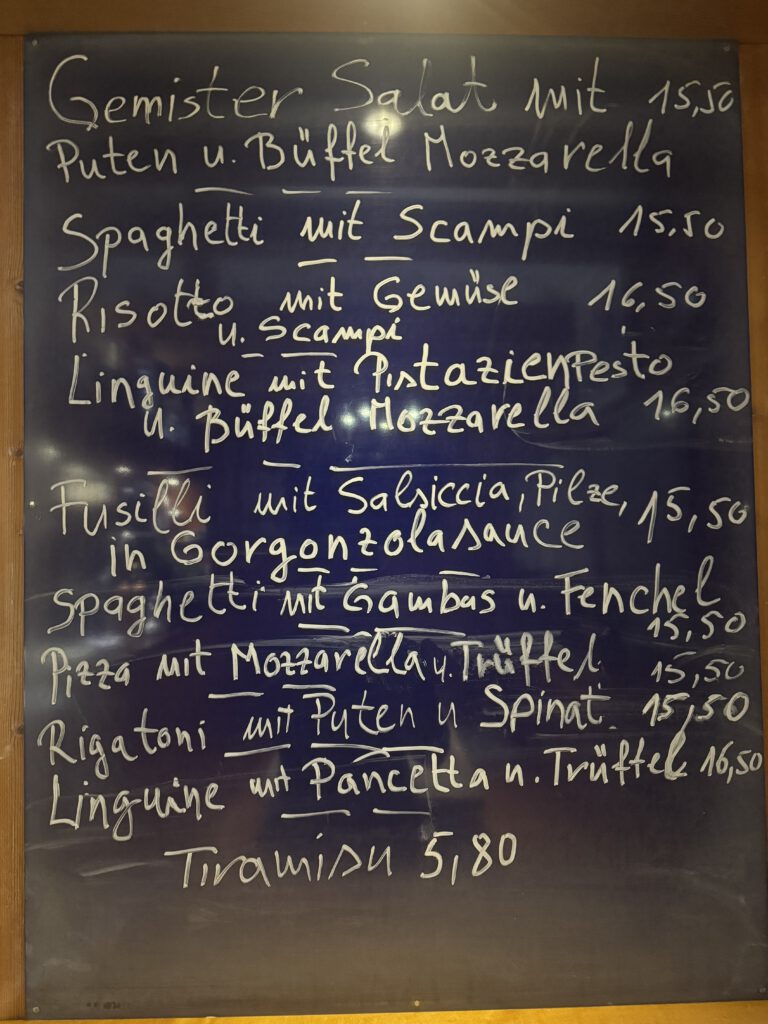 Gemister Salat mit 15,50
Puten u. Büffel Mozzarella
Spaghetti mit Scampi 15.50
Risotto mit Gemüse 16,50
u. Scampi
Linguine mit PistazienPesto
u. Büffel Mozzarella 16,50
Fusilli mit Salsiccia, Pilze, 15,50
in Gorgonzolasauce
Spaghetti mit Gambas u. Fenchel
15,50
Pizza mit Mozzarella u. Trüffel 15,50
Rigatoni mit Puten u Spinat 15,50
Linguine mit Pancetta u. Trüffel 16,50
Tiramisu 5,80